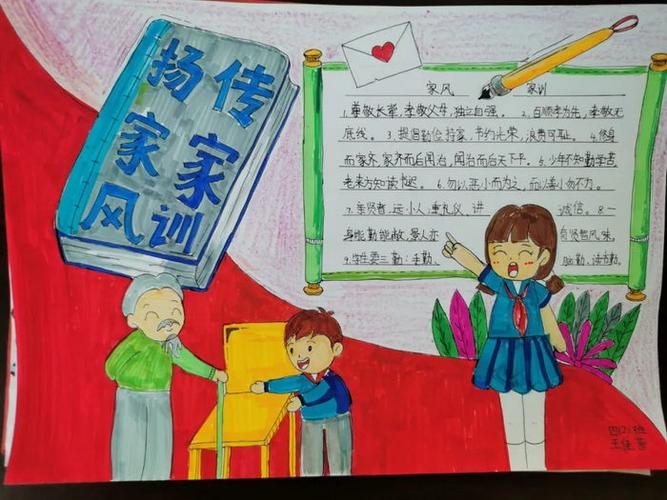 传家训
扬家风
家风 家训
1.尊敬长辈,孝敬父母,独立自强。 2.百顺孝为先,孝敬无
底线。 3.提倡勤俭持家,节约光荣,浪费可耻。 4.修身
而家齐,家齐而后国治,国治而后天下平。 5.少年不知勤学苦
老来方知读书迟。 6.勿以恶小而为之,而以善小勿不为。
7.亲贤者,远小人,重礼仪,讲 诚信。 8.一
身能勤能敬,愚人亦 有贤智风味。
9.学生要三勤:手勤、 脑勤、读书勤。
四(2)班
王佳